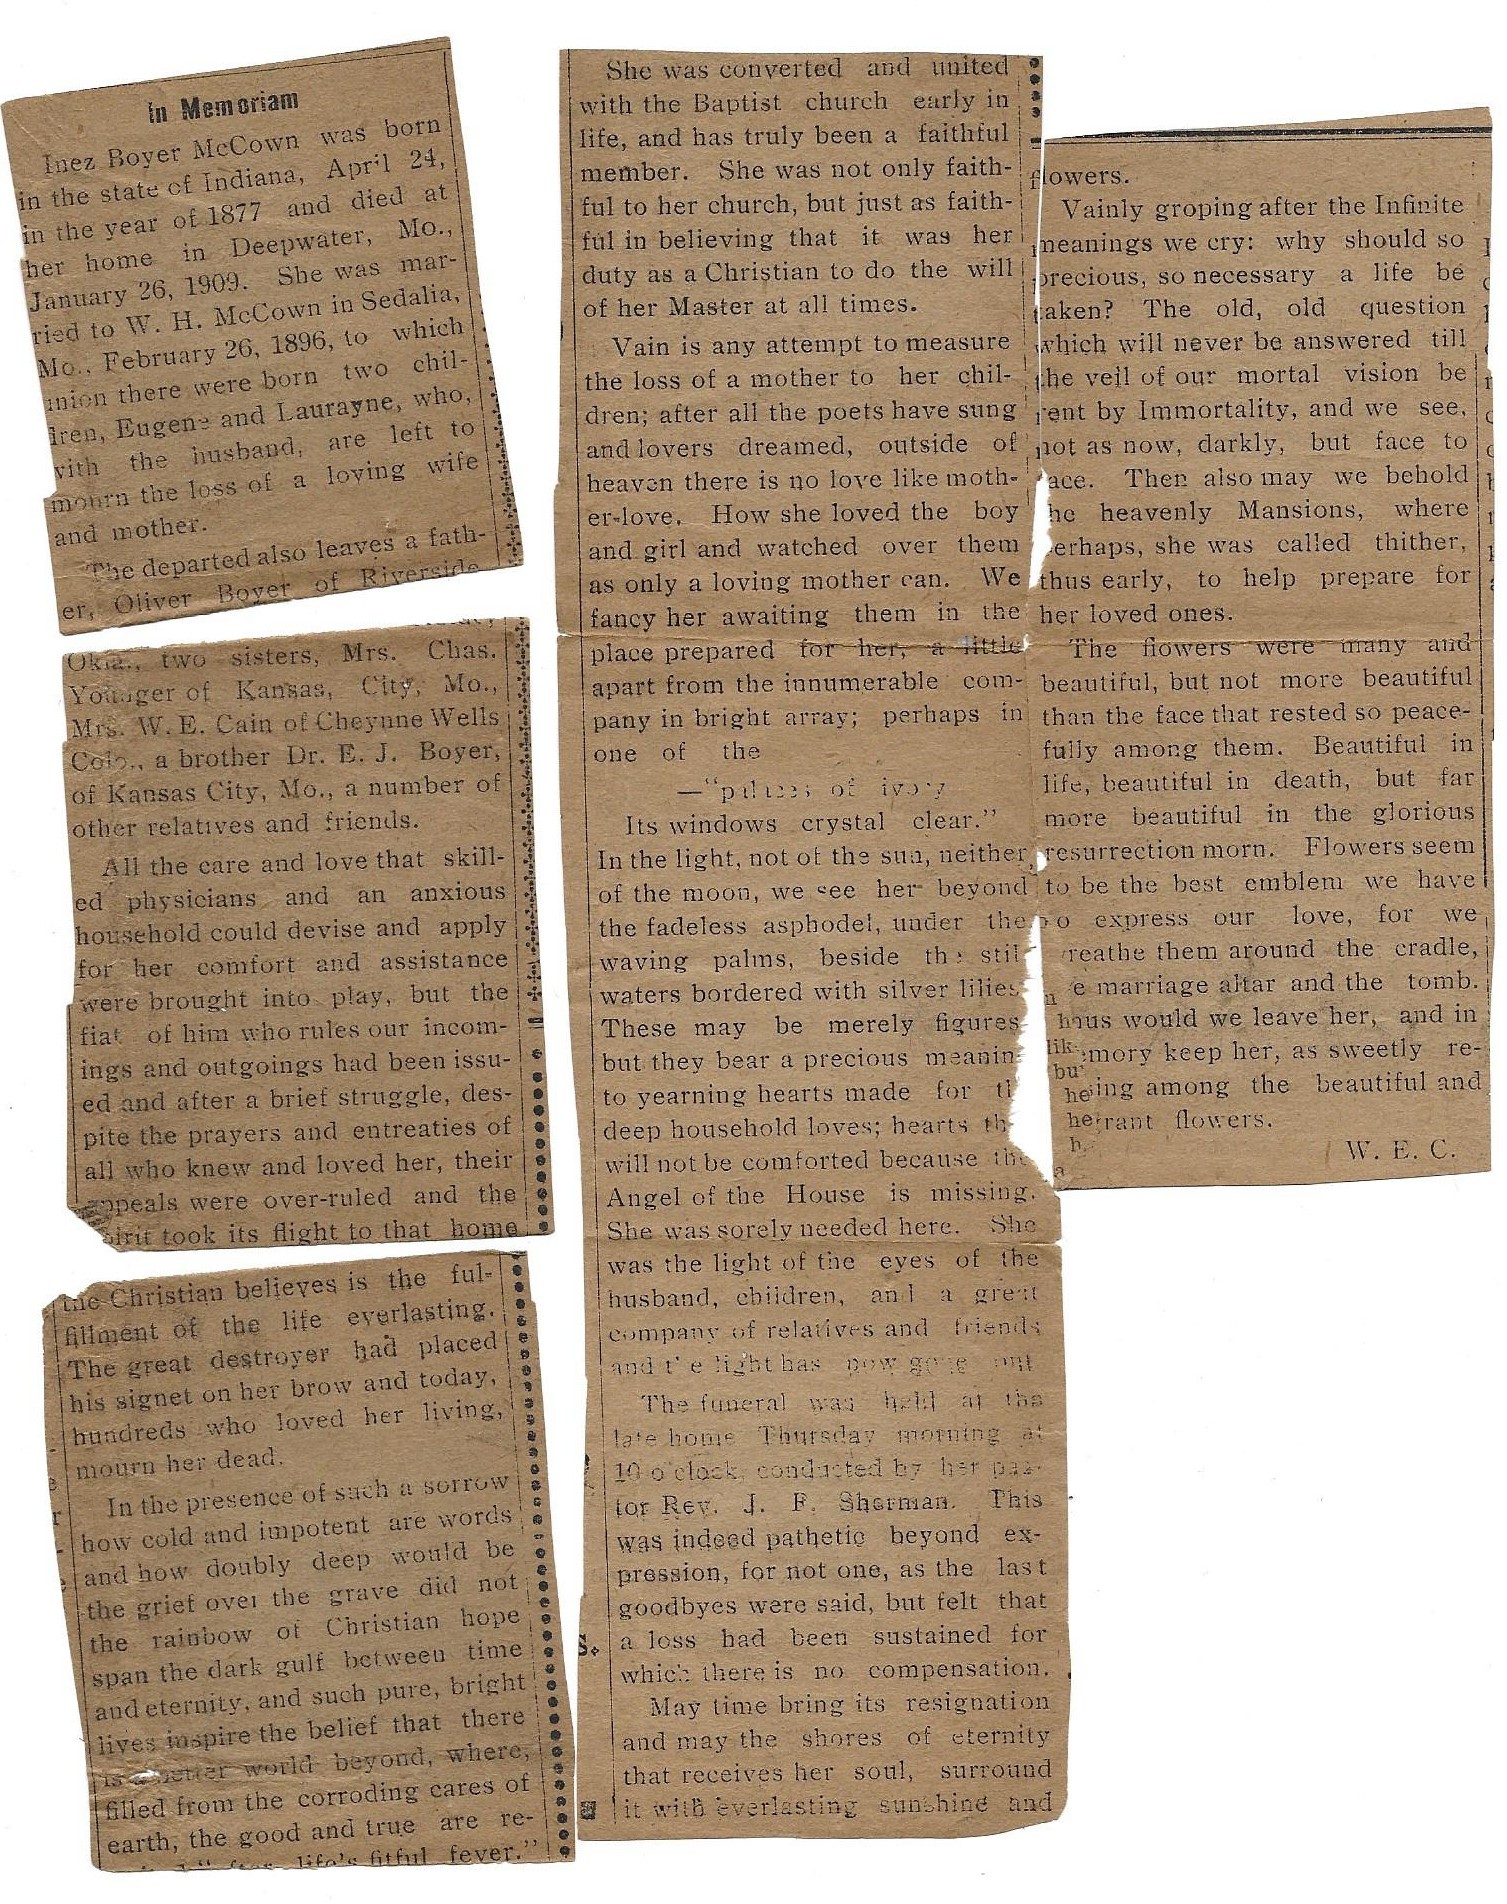 In Memoriam
Inez Boyer McCown was born
in the state of Indiana, April 24,
in the year of 1877 and died at
her home in Deepwater, Mo.,
January 26, 1909. She was mar-
ried to W. H. McCown in Sedalia,
Mo., February 26, 1896, to which
union there were born two chil-
dren, Eugene and Laurayne, who,
with the husband, are left to
mourn the loss of a loving wife
and mother.
The departed also leaves a fath-
er, Oliver Boyer of Riverside
Okla., two sisters, Mrs. Chas.
Younger of Kansas, City, Mo.,
Mrs. W. E. Cain of Cheynne Wells
Colo., a brother Dr. E. J. Boyer,
of Kansas City, Mo., a number of
other relatives and friends.
All the care and love that skill-
ed physicians and an anxious
household could devise and apply
for her comfort and assistance
were brought into play, but the
fiat of him who rules our incom-
ings and outgoings had been issu-
ed and after a brief struggle, des-
pite the prayers and entreaties of
all who knew and loved her, their
appeals were over-ruled and the
spirit took its flight to that home
the Christian believes is the ful-
fillment of the life everlasting.
The great destroyer had placed
his signet on her brow and today,
hundreds who loved her living,
mourn her dead.
In the presence of such a sorrow
how cold and impotent are words
and how doubly deep would be
the grief over the grave did not
the rainbow of Christian hope
span the dark gulf between time
and eternity, and such pure, bright
lives inspire the belief that there
is a better world beyond, where,
filled from the corroding cares of
earth, the good and true are re-
life's fitful fever."
She was converted and united
with the Baptist church early in
life, and has truly been a faithful
member. She was not only faith-
ful to her church, but just as faith-
ful in believing that it was her
duty as a Christian to do the will
of her Master at all times.
Vain is any attempt to measure
the loss of a mother to her chil-
dren; after all the poets have sung
and lovers dreamed, outside of
heaven there is no love like moth-
er-love. How she loved the boy
and girl and watched over them
as only a loving mother can. We
fancy her awaiting them in the
place prepared for her, a little
apart from the innumerable com-
pany in bright array; perhaps in
one of the
—"palaces of ivory
Its windows crystal clear."
In the light, not of the sun, neither
of the moon, we see her beyond
the fadeless asphodel, under the
waving palms, beside the still
waters bordered with silver lilies
These may be merely figures
but they bear a precious meanin
to yearning hearts made for th
deep household loves; hearts th
will not be comforted because the
Angel of the House is missing.
She was sorely needed here. She
was the light of the eyes of the
husband, children, and a great
company of relatives and friends
and the light has now gone out
The funeral was held at the
late home Thursday morning at
10 o'clock, conducted by her pas-
tor Rev. J. F. Sherman. This
was indeed pathetic beyond ex-
pression, for not one, as the last
goodbyes were said, but felt that
a loss had been sustained for
which there is no compensation.
May time bring its resignation
and may the shores of eternity
that receives her soul, surround
it with everlasting sunshine and
flowers.
Vainly groping after the Infinite
meanings we cry: why should so
precious, so necessary a life be
taken? The old, old question
which will never be answered till
the veil of our mortal vision be
rent by Immortality, and we see,
not as now, darkly, but face to
face. Then also may we behold
the heavenly Mansions, where
perhaps, she was called thither,
thus early, to help prepare for
her loved ones.
The flowers were many and
beautiful, but not more beautiful
than the face that rested so peace-
fully among them. Beautiful in
life, beautiful in death, but far
more beautiful in the glorious
resurrection morn. Flowers seem
to be the best emblem we have
o express our love, for we
reathe them around the cradle,
e marriage altar and the tomb.
hus would we leave her, and in
mory keep her, as sweetly re-
ing among the beautiful and
rant flowers.
W. E. C.